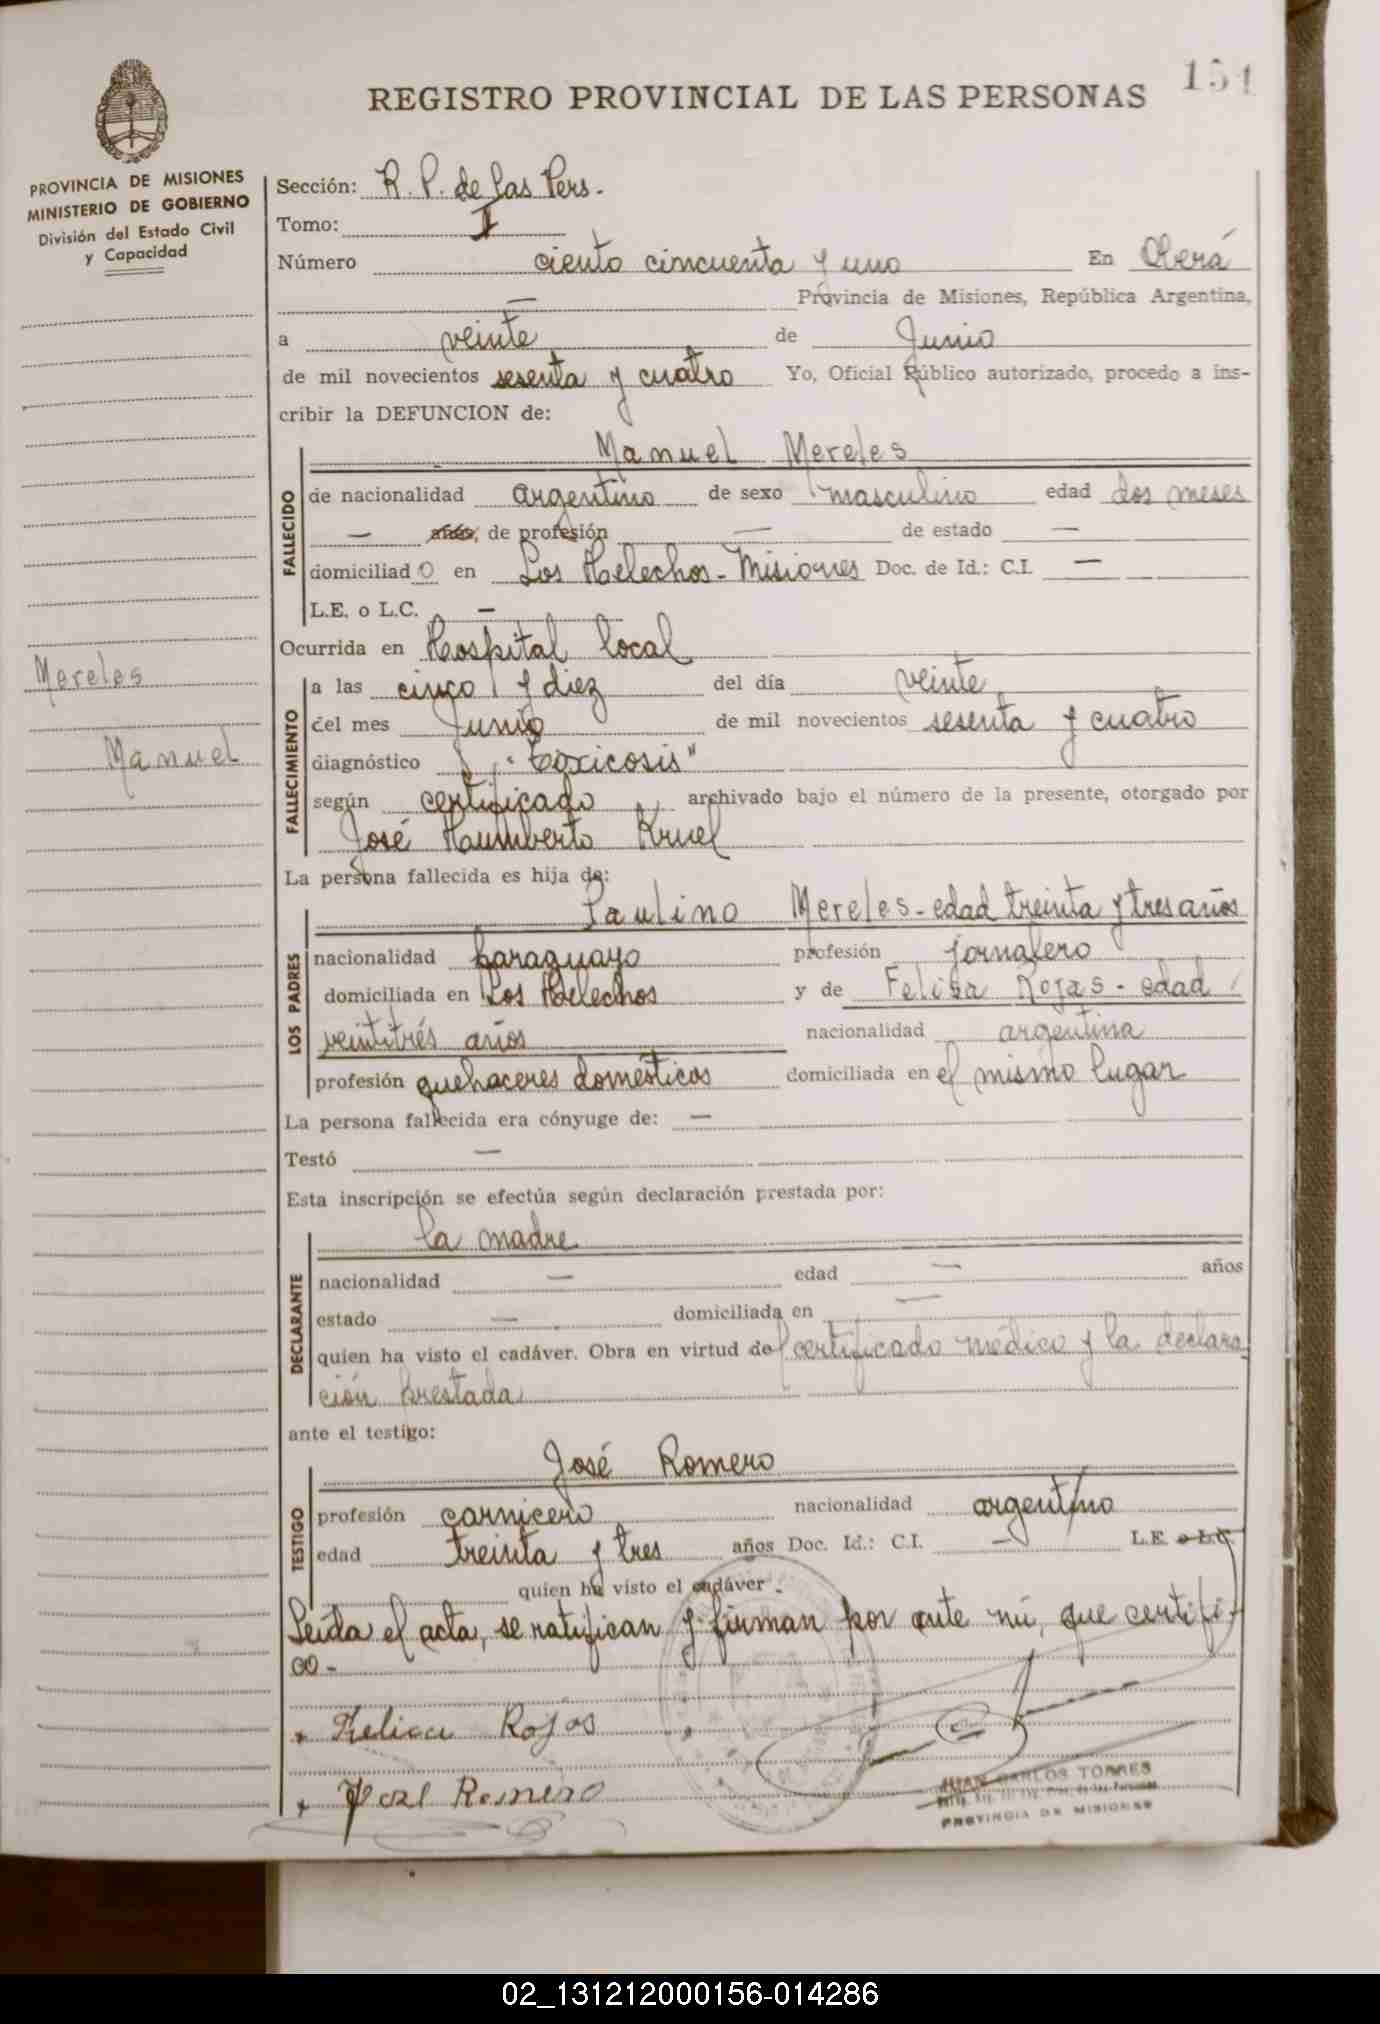 151
REGISTRO PROVINCIAL DE LAS PERSONAS
PROVINCIA DE MISIONES
MINISTERIO DE GOBIERNO
División del Estado Civil
y Capacidad
Sección: R. P. de las Pers.
Tomo: I
Número ciento cincuenta y uno En Oberá
— Provincia de Misiones, República Argentina,
a veinte de Junio
de mil novecientos sesenta y cuatro Yo, Oficial Público autorizado, procedo a ins-
cribir la DEFUNCION de:
FALLECIDO
Manuel Mereles
de nacionalidad argentino de sexo masculino edad dos meses
— años, de profesión — de estado —
domiciliado en Los Helechos - Misiones Doc. de Id.: C.I. —
L.E. o L.C. —
Ocurrida en Hospital local
Mereles
Manuel
FALLECIMIENTO
a las cinco y diez del día veinte
del mes Junio de mil novecientos sesenta y cuatro
diagnóstico "toxicosis"
según certificado archivado bajo el número de la presente, otorgado por
José Humberto Kruel
La persona fallecida es hija de:
LOS PADRES
Paulino Mereles - edad treinta y tres años
nacionalidad paraguayo profesión jornalero
domiciliada en Los Helechos y de Felisa Rojas - edad
veintitrés años nacionalidad argentina
profesión quehaceres domésticos domiciliada en el mismo lugar
La persona fallecida era cónyuge de: —
Testó —
Esta inscripción se efectúa según declaración prestada por:
DECLARANTE
la madre
nacionalidad — edad — años
estado — domiciliada en —
quien ha visto el cadáver. Obra en virtud del certificado médico y la declara
ción prestada
ante el testigo:
TESTIGO
José Romero
profesión carnicero nacionalidad argentino
edad treinta y tres años Doc. Id.: C.I. — L.E. o L.C.
quien ha visto el cadáver.
Leída el acta, se ratifican y firman por ante mí, que certifi-
co -
Felisa Rojas
José Romero
JUAN CARLOS TORRES
PROVINCIA DE MISIONES
02_131212000156-014286